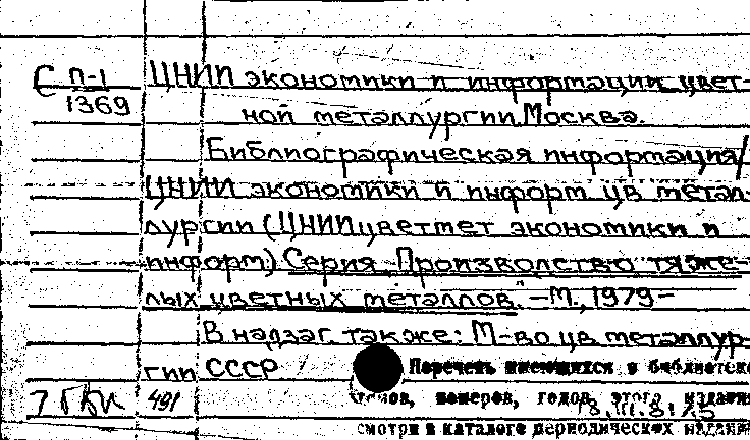 С П-1 ЦНИИ экономики и информации цвет-
1369 ной металлургии. Москва.
Библиографическая информация/
ЦНИИ экономики и информ. цв. метал-
лургии (ЦНИИцветмет экономики и
информ) Серия "Производство тяже-
лых цветных металлов". – М., 1979 –
В надзаг. также: М-во цв. металлур-
гии СССР
Перечень имеющихся в библиотеке
томов, номеров, годов этого издания
491
смотри в каталоге периодических изданий